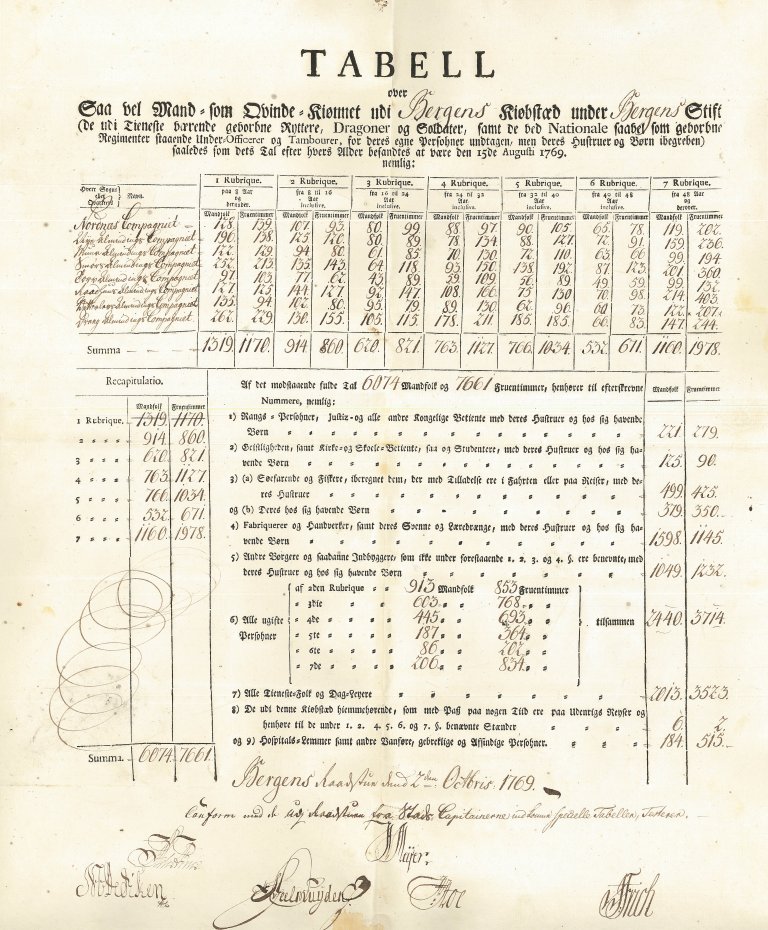 TABELL
over
Saa vel Mand-som Qvinde-Kiønnet udi Bergens Kiøbstæd under Bergens Stift
(de udi Tieneste værende gevorbne Ryttere, Dragoner og Soldater, samt de ved Nationale saavel som gevorbne
Regimenter staaende Under-Officerer og Tambourer, for deres egne Persohner undtagen, men deres Hustruer og Børn ibegreben)
saaledes som dets Tal efter hvers Alder befandtes at være den 15de Augusti 1769.
nemlig:
Navn. 1 Rubrique. 2 Rubrique. 3 Rubrique. 4 Rubrique. 5 Rubrique. 6 Rubrique. 7 Rubrique.
paa 8 Aar og derunder. fra 8 til 16 Aar inclusive. fra 16 til 24 Aar inclusive. fra 24 til 32 Aar inclusive. fra 32 til 40 Aar inclusive. fra 40 til 48 Aar inclusive. fra 48 Aar og derover.
Mandfolk Fruentimmer Mandfolk Fruentimmer Mandfolk Fruentimmer Mandfolk Fruentimmer Mandfolk Fruentimmer Mandfolk Fruentimmer Mandfolk Fruentimmer
Norenas Compagniet 128. 159. 107. 93. 80. 99 88 97. 90. 105. 65. 78 119. 202.
Almindings Compagniet 190. 138. 125. 120. 80. 89 78 134. 88. 127. 72. 91. 159. 236.
Almindings Compagniet 122. 129. 94 80. 61. 85 70. 130. 72 110. 63 66 99. 194
Almindings Compagniet 252. 213. 135. 143. 64 118. 93. 150. 138. 192 87. 123. 201 360.
Almindings Compagniet 97. 103. 77 62. 43. 89 59. 109 56. 89 49. 59. 99. 132
Almindings Compagniet 127. 125. 144. 127. 92. 147. 108. 166. 75 150 70. 98. 214. 403.
Almindings Compagniet 135. 94 102. 80. 95 79. 89. 130. 62 96. 60 73 122. 207.
Almindings Compagniet 262. 229 130. 155. 105. 115. 178. 211. 185. 185. 66. 83. 147. 244.
Summa 1319. 1170. 914. 860. 620. 821. 763. 1127. 766. 1034. 532. 671. 1160. 1978.
Recapitulatio.
Mandfolk Fruentimmer
1 Rubrique. 1319. 1170.
2 914. 860.
3 620. 821.
4 763. 1127.
5 766. 1034.
6 532. 671
7 1160. 1978.
Summa. 6074. 7661.
Af det modstaaende fulde Tal 6074 Mandfolk og 7661 Fruentimmer, henhører til efterskrevne Mandfolk Fruentimmer
Nummere, nemlig:
1) Rangs-Persohner, Justiz-og alle andre Kongelige Betiente med deres Hustruer og hos sig havende
Børn 221. 279.
2) Geistligheden, samt Kirke-og Skoele-Betiente, saa og Studentere, med deres Hustruer og hos sig ha-
vende Børn 125. 90.
3) (a) Søefarende og Fiskere, iberegnet dem, der med Tilladelse ere i Fahrten eller paa Reiser, med de-
res Hustruer 499. 425.
og (b) Deres hos sig havende Børn 379. 350.
4) Fabriquerer og Handverker, samt deres Svenne og Læredrænge, med deres Hustruer og hos sig ha-
vende Børn 1598. 1145.
5) Andre Borgere og saadanne Indbyggere, som ikke under forestaaende 1. 2. 3. og 4. §. ere benevnte, med
deres Hustruer og hos sig havende Børn 1049. 1232.
6) Alle ugifte Persohner
af 2den Rubrique 913 Mandfolk 853 Fruentimmer
3die 603. 768.
4de 445. 693.
5te 187. 364.
6te 86. 202.
7de 206. 834.
tilsammen 2440. 3714.
7) Alle Tieneste-Folk og Dag-Leyere 2013. 3523.
8) De udi denne Kiøbstæd hiemmehørende, som med Pass paa nogen Tiid ere paa Udenrigs Reyser og
henhøre til de under 1. 2. 4. 5. 6. og 7. §. benævnte Stænder 6. 2.
og 9) Hospitals-Lemmer samt andre Vanføre, gebreklige og Afsindige Persohner. 184. 515.
Bergens Raadstue dend 2den Octbris. 1769.
Conform med de udj Raadstuen fra Stads Capitainerne indkomne specielle Tabeller, Testerer.
Meyer.